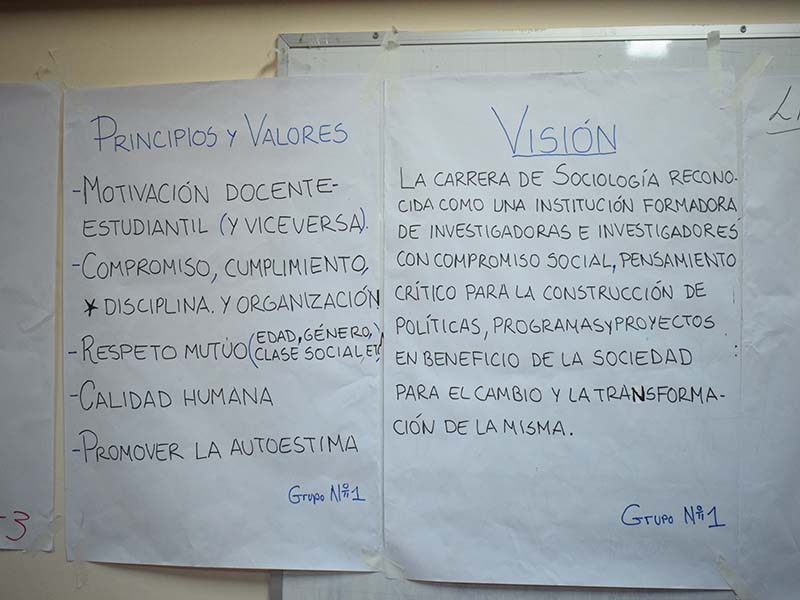 PRINCIPIOS Y VALORES
-MOTIVACIÓN DOCENTE-
ESTUDIANTIL (Y VICEVERSA).
-COMPROMISO, CUMPLIMIENTO,
DISCIPLINA. Y ORGANIZACIÓN
-RESPETO MUTÚO (EDAD, GÉNERO,)
CLASE SOCIAL ET
-CALIDAD HUMANA
-PROMOVER LA AUTOESTIMA
GRUPO Nº 1
VISIÓN
LA CARRERA DE SOCIOLOGÍA RECONO-
CIDA COMO UNA INSTITUCIÓN FORMADORA
DE INVESTIGADORAS E INVESTIGADORES
CON COMPROMISO SOCIAL, PENSAMIENTO
CRÍTICO PARA LA CONSTRUCCIÓN DE
POLÍTICAS, PROGRAMAS Y PROYECTOS
EN BENEFICIO DE LA SOCIEDAD
PARA EL CAMBIO Y LA TRANSFORMA-
CIÓN DE LA MISMA.
GRUPO Nº 1
3